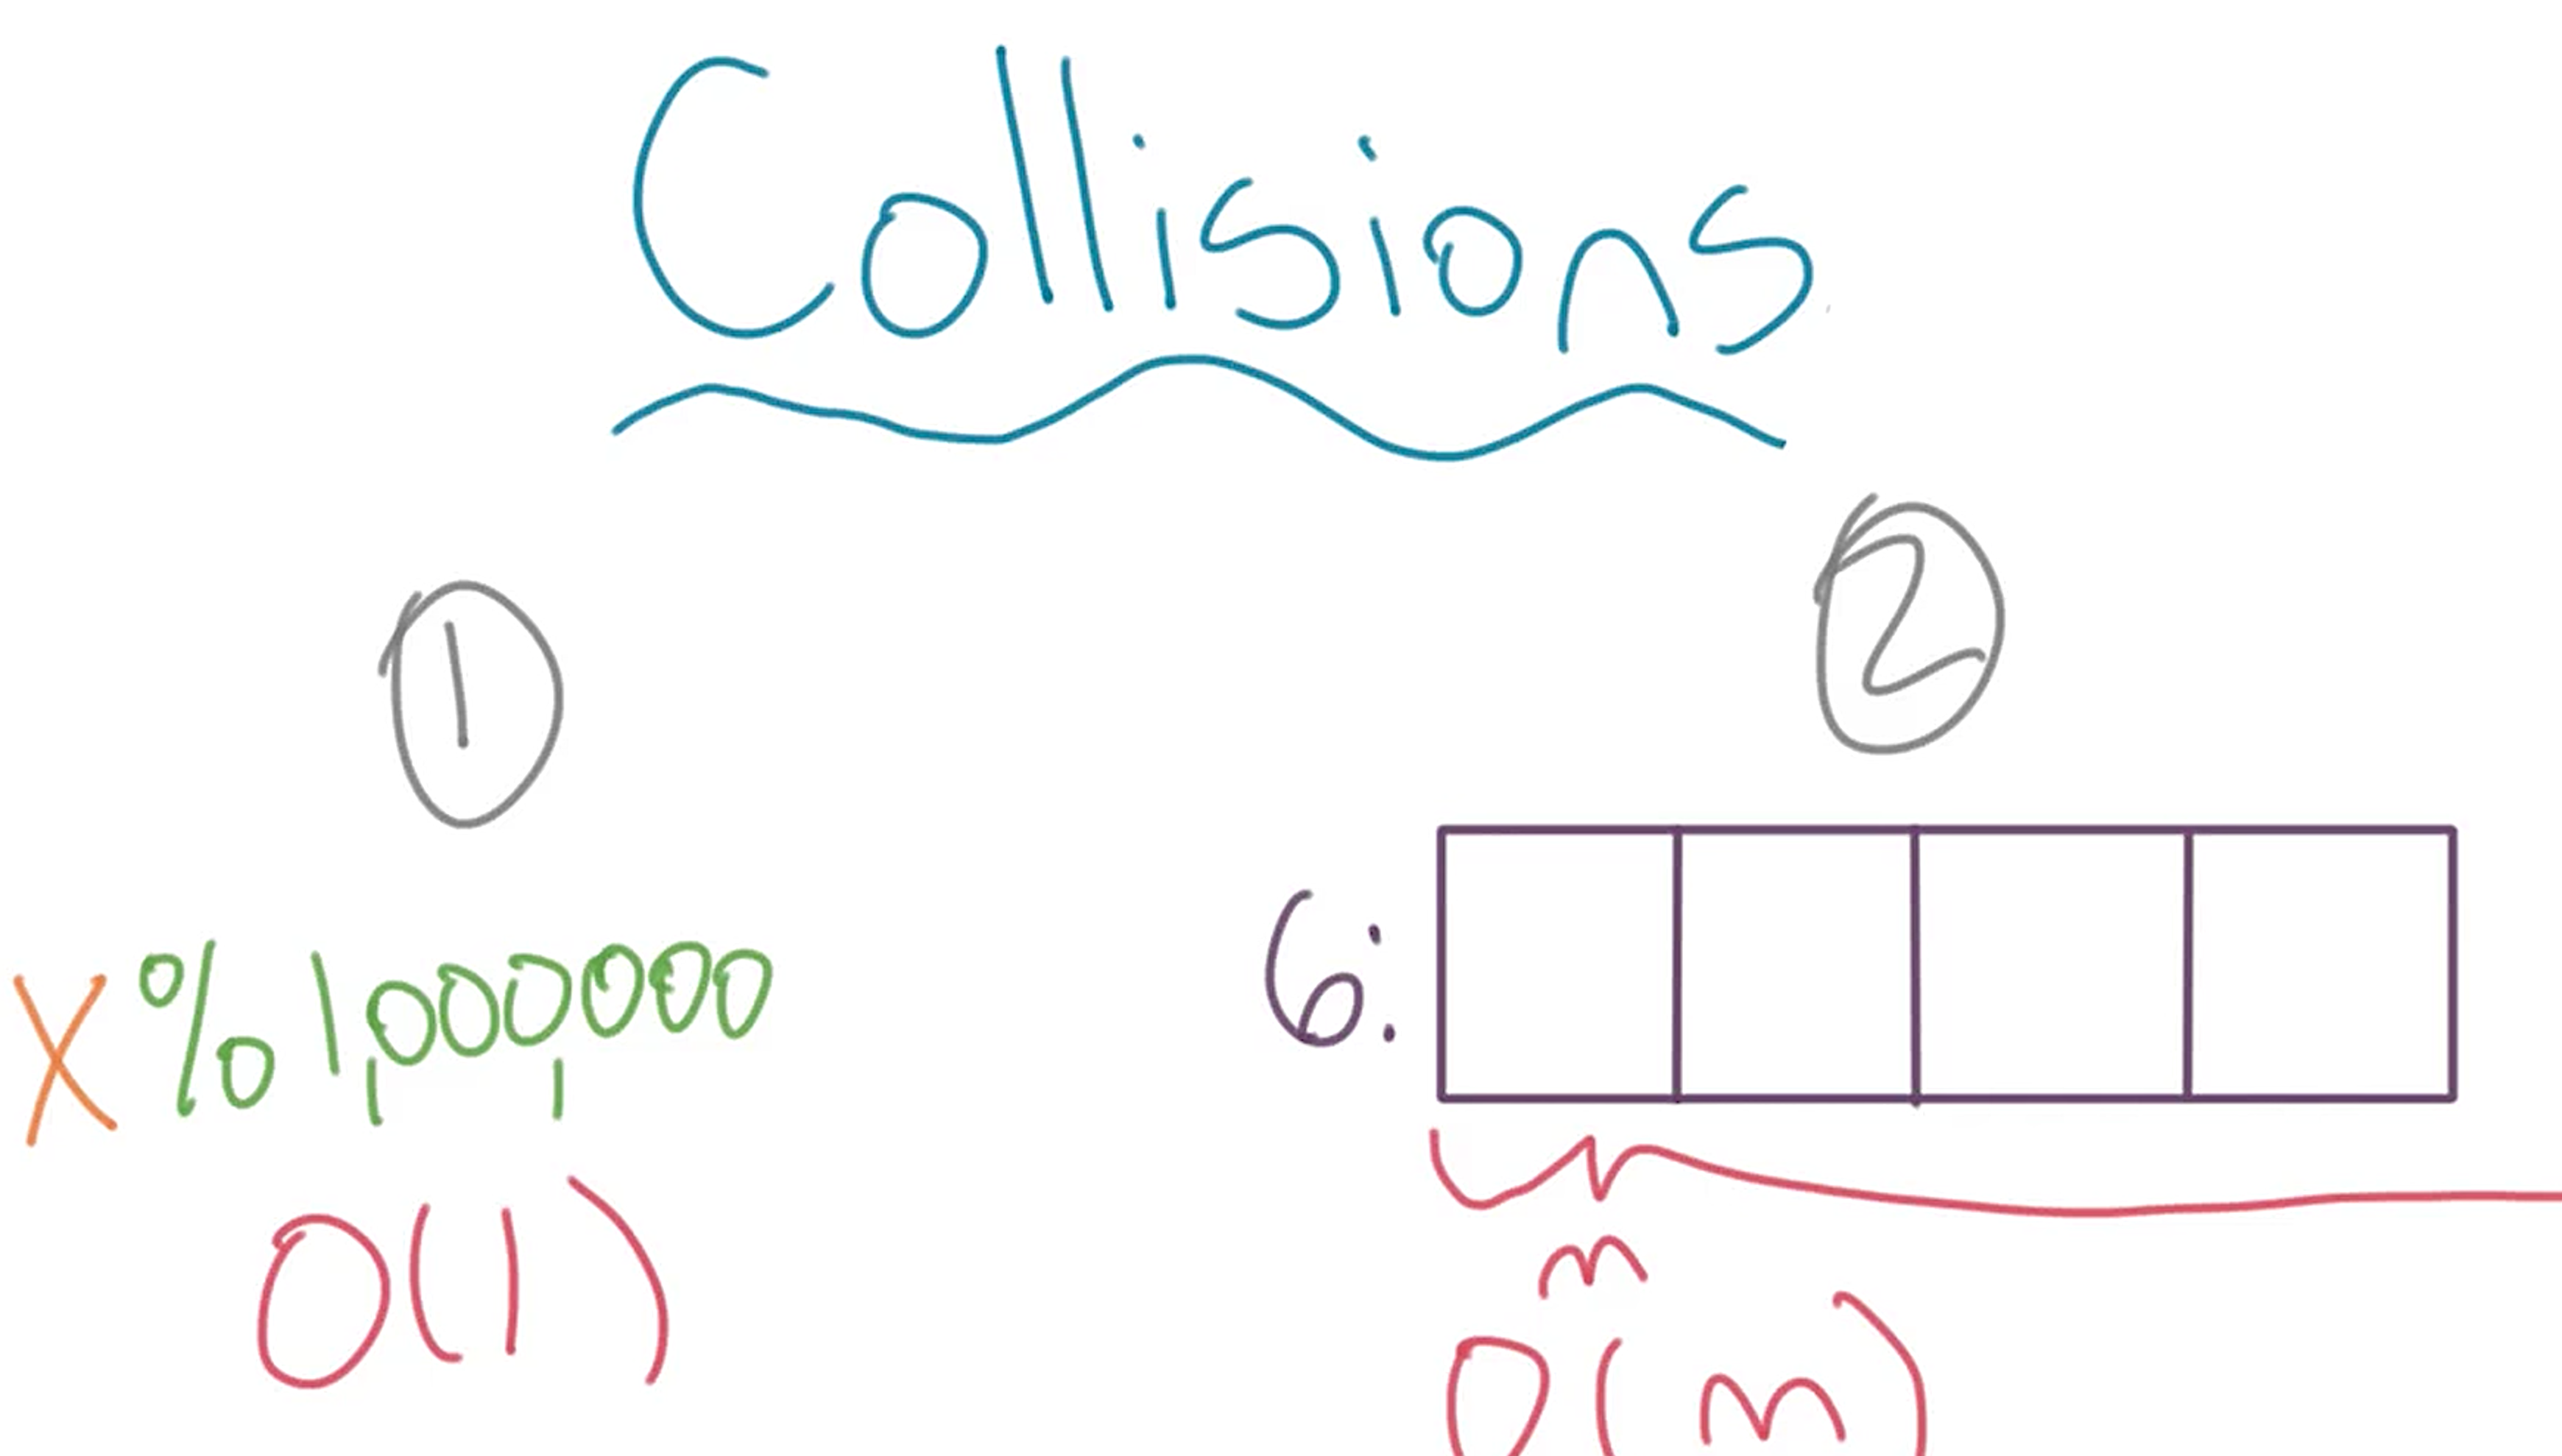 Collisions
1
2
X % 1,000,000
6:
O(1)
m
O(m)